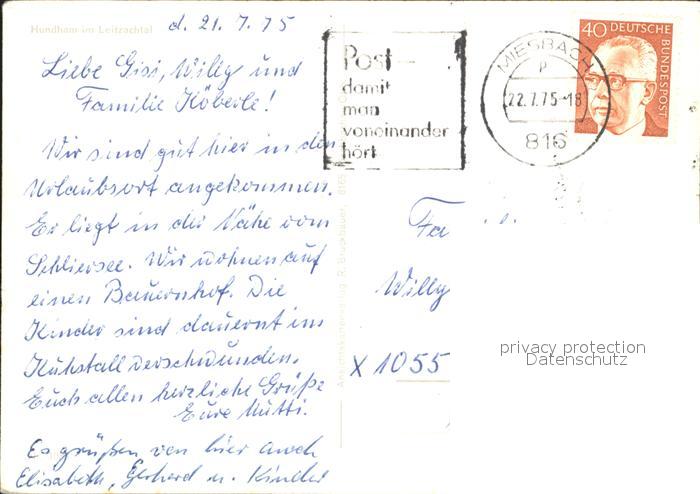 Hundham im Leitzachtal
d. 21. 7. 75
Liebe Gisi, Willy und
Familie Köberle!
Wir sind gut hier in den
Urlaubsort angekommen.
Er liegt in der Nähe vom
Schliersee. Wir wohnen auf
einen Bauernhof. Die
Kinder sind dauernt im
Kuhstall verschwunden.
Euch allen herzliche Grüße
Eure Mutti.
Es grüßen von hier auch
Elisabeth, Gerhard u. Kinder
Post-
damit
man
voneinander
hört
MIESBACH
p
22.7.75-18
816
40 DEUTSCHE
BUNDESPOST
Fa
Willy
X 1055
Ansichtskartenverlag R. Bruckbauer
privacy protection
Datenschutz